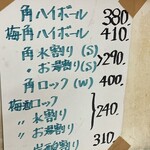 角ハイボール 380.
梅角ハイボール 410.
角水割り(S)
〃お湯割り(S) 290.
角ロック(W) 400.
梅酒ロック
〃 水割り 240.
〃 お湯割り
〃 炭酸割り 310.